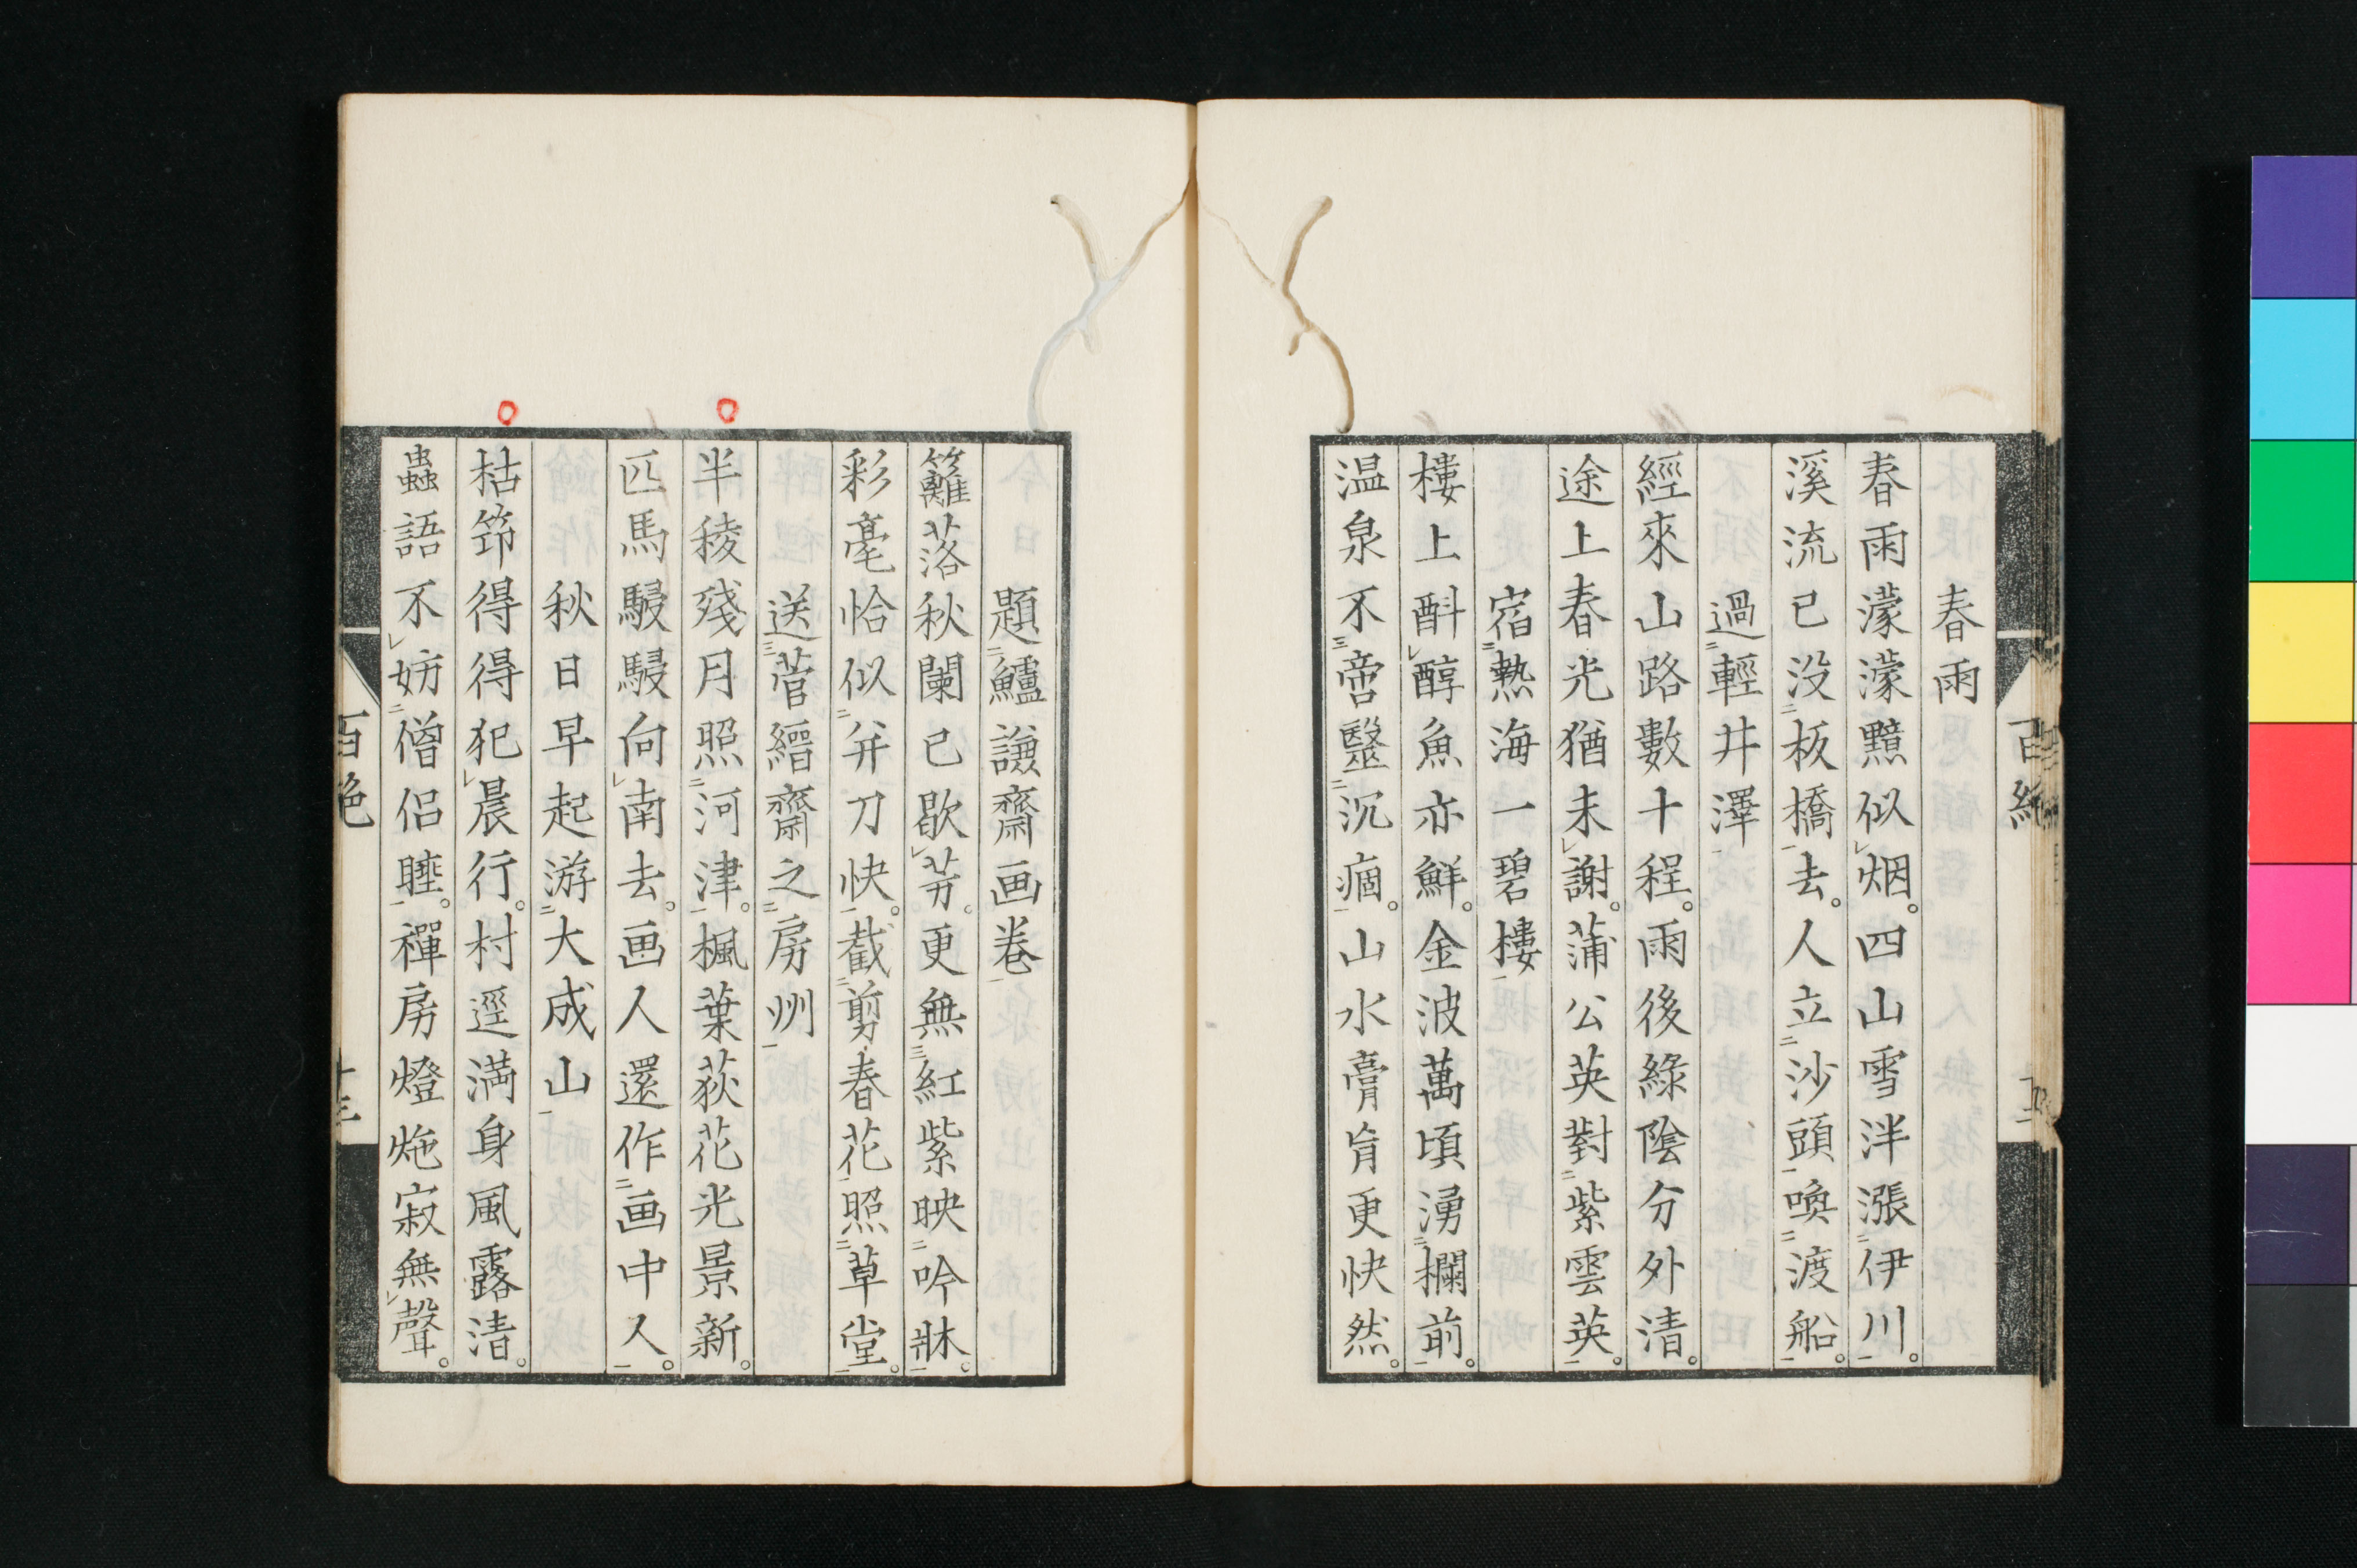 春雨
春雨濛濛黯似烟。四山雪泮漲伊川。
溪流已没板橋去。人立沙頭喚渡船。
過輕井澤
經來山路數十程。雨後綠陰分外清。
途上春光猶未謝。蒲公英對紫雲英。
宿熱海一碧樓
樓上酙醇魚亦鮮。金波萬頃湧欄前。
温泉不啻毉沉痼。山水膏肓更快然。
百絶
題鱸謙齋画卷
籬落秋闌已歇芳。更無紅紫映吟牀。
彩毫恰似并刀快。截剪春花照草堂。
送菅縉齋之房州
半稜殘月照河津。楓葉荻花光景新。
匹馬駸駸向南去。画人還作画中人。
秋日早起游大成山
枯筇得得犯晨行。村逕満身風露清。
蟲語不妨僧侶睡。禪房燈灺寂無聲。
百絶
十三